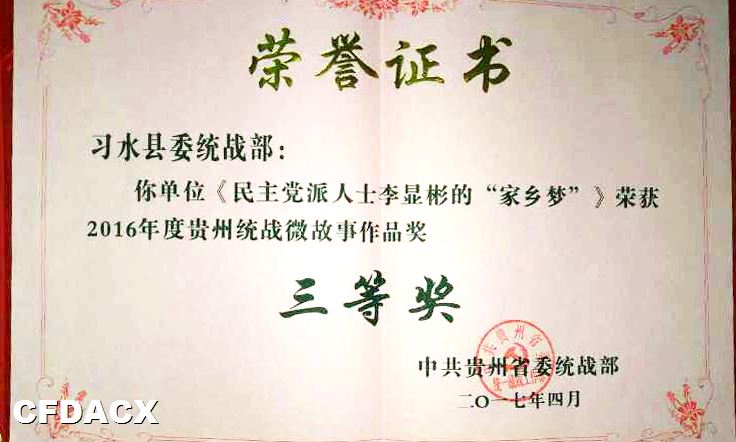 荣誉证书
习水县委统战部：
你单位《民主党派人士李显彬的“家乡梦”》荣获
2016年度贵州统战微故事作品奖
三等奖
中共贵州省委统战部
二〇一七年四月
CFDACX